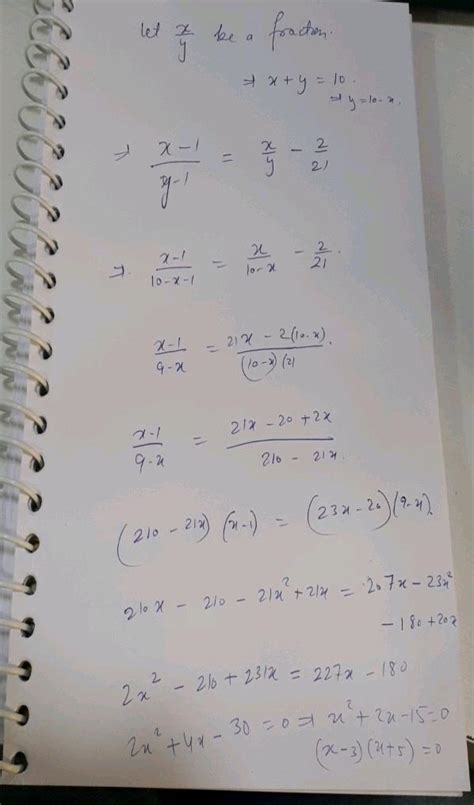 let x/y be a fraction.
⇒ x + y = 10.
⇒ y = 10 - x.
⇒ (x - 1)/(y - 1) = x/y - 2/21
⇒ (x-1)/(10-x-1) = x/(10-x) - 2/21.
(x-1)/(9-x) = (21x - 2(10-x))/((10-x)(21).
(x-1)/(9-x) = (21x - 20 + 2x)/(210 - 21x.)
(210 - 21x)(x-1) = (23x - 20)(9-x).
210x - 210 - 21x² + 21x = 207x - 23x²
- 180 + 20x
2x² - 210 + 231x = 227x - 180
2x² + 4x - 30 = 0 ⇒ x² + 2x - 15 = 0
(x-3)(x+5) = 0